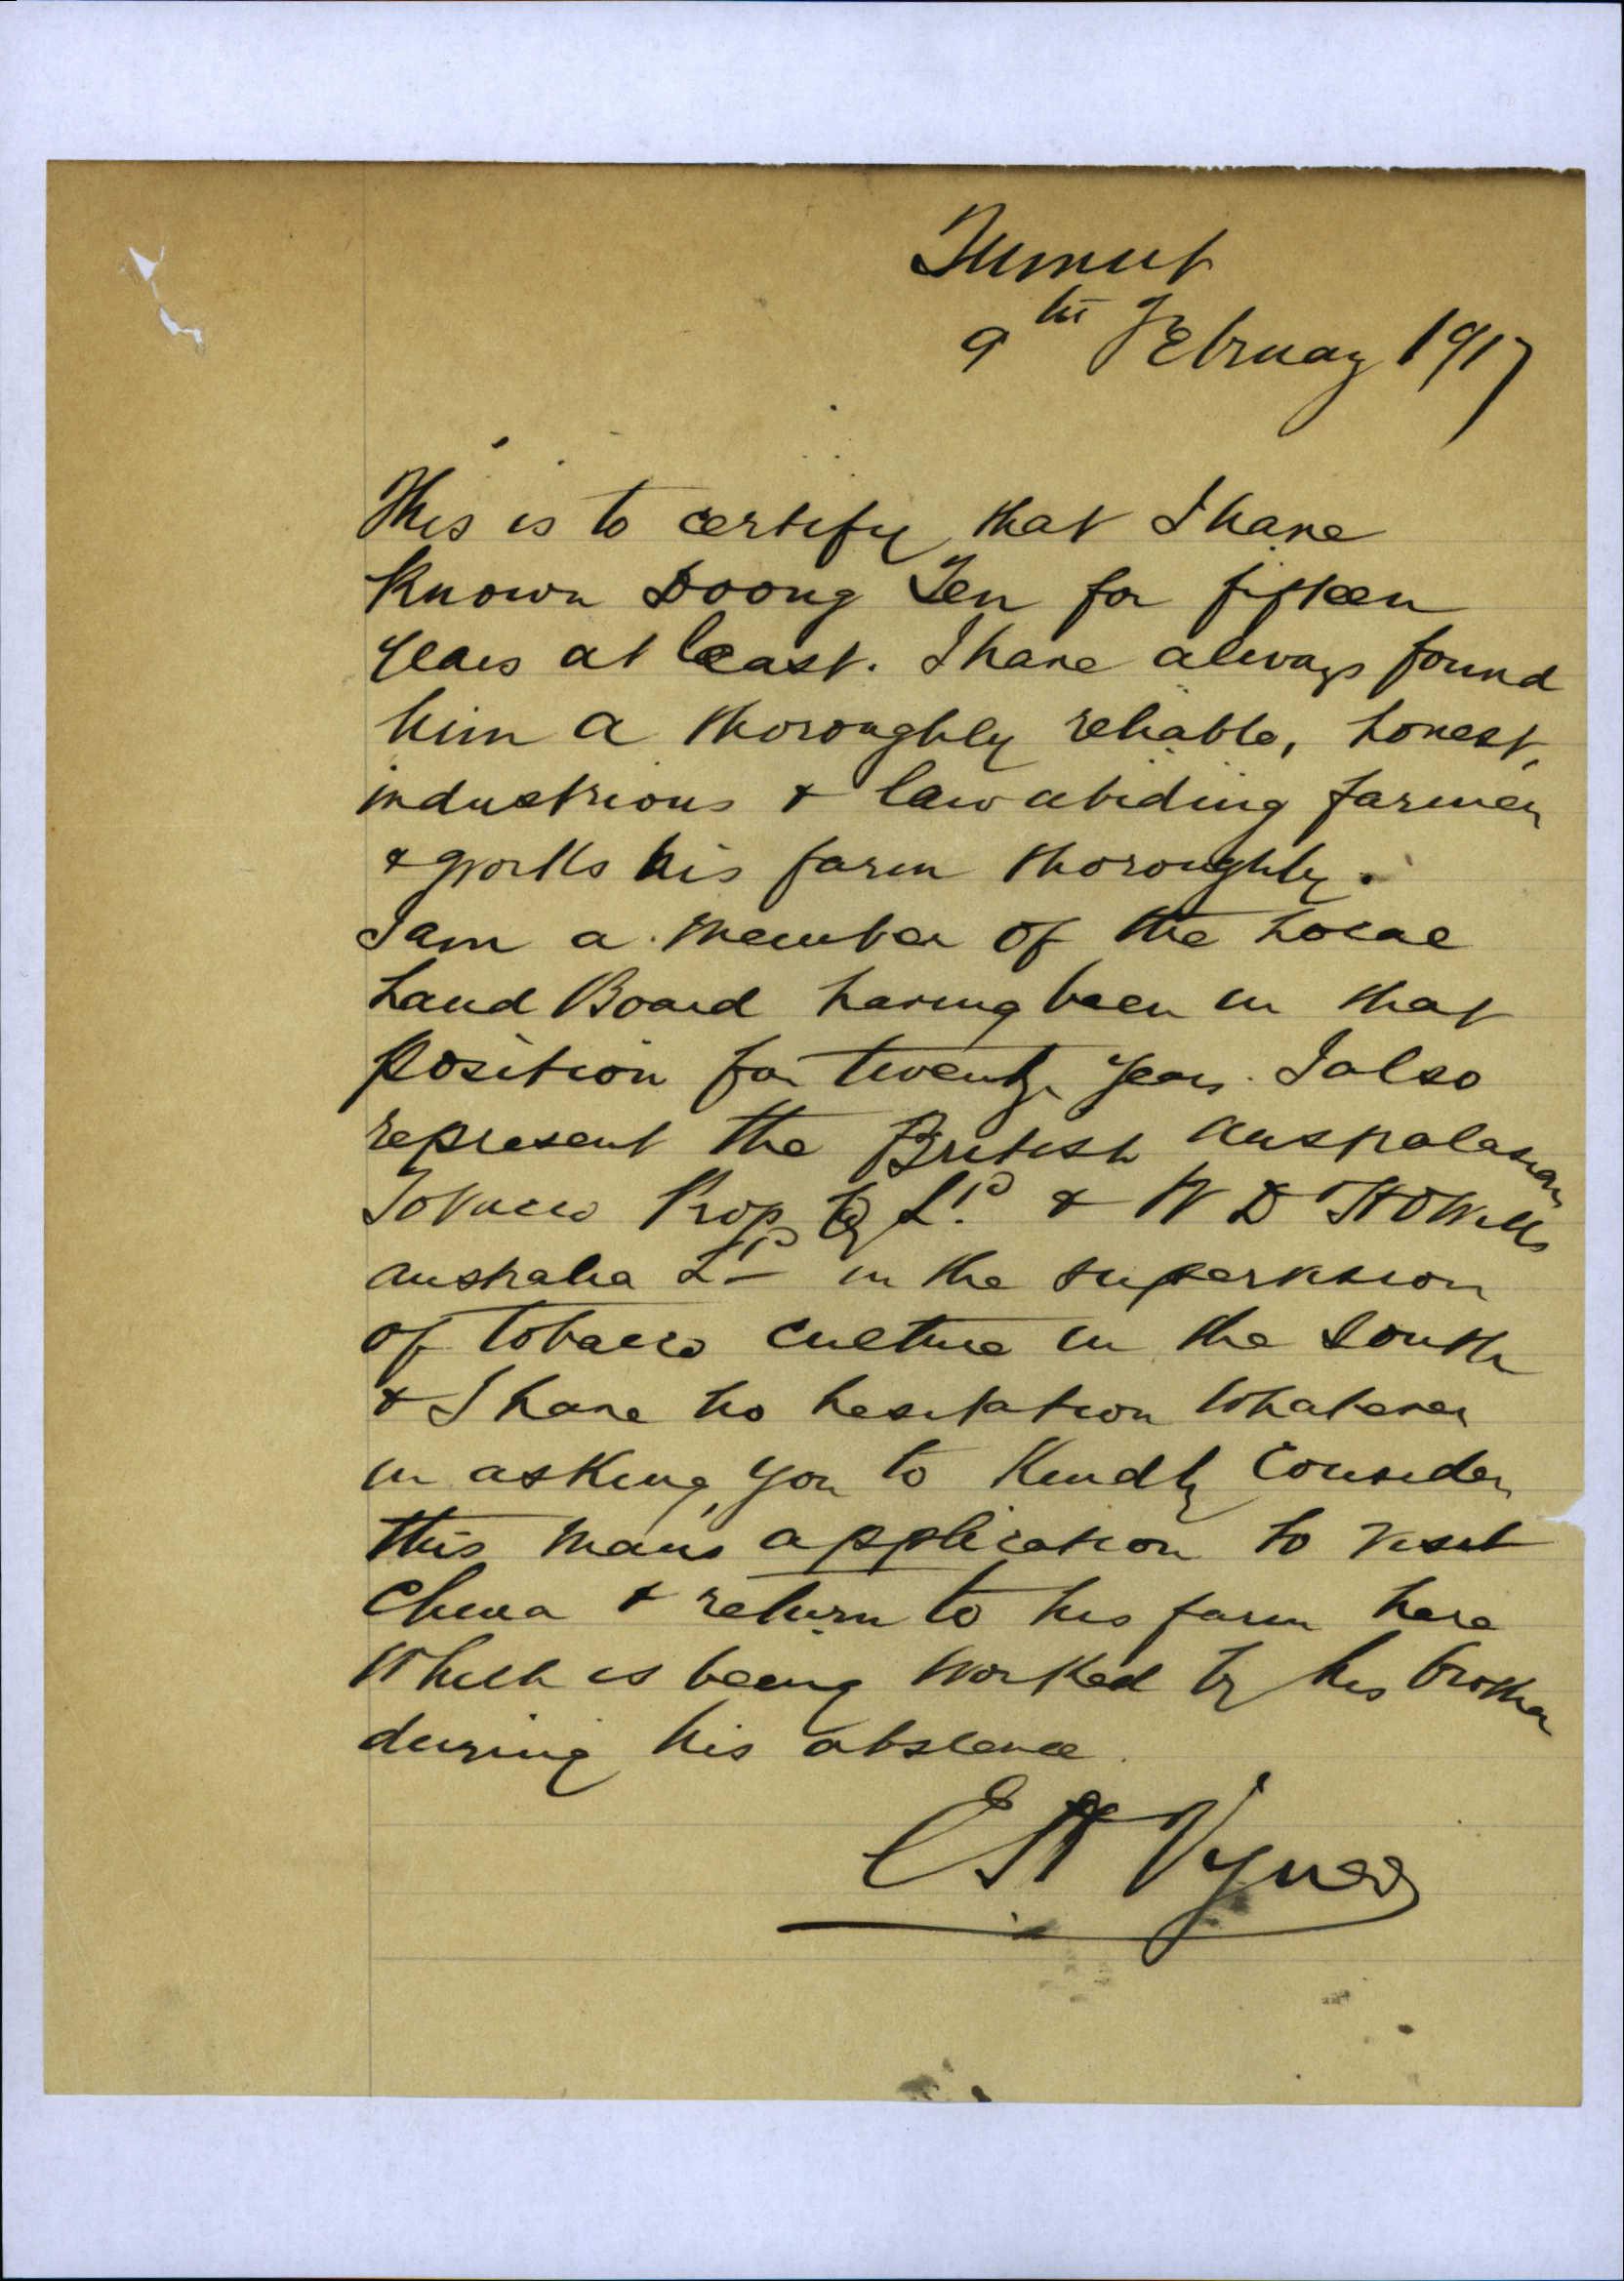 Tumut
9th February 1917
This is to certify that I have
known Doong Ten for fifteen
years at least. I have always found
him a thoroughly reliable, honest,
industrious & law abiding farmer
& works his farm thoroughly.
I am a member of the Local
Land Board having been in that
position for twenty years. I also
represent the British Australasian
Tobacco Propty Ld & W D & H O Wills
Australia Ld in the supervision
of tobacco culture in the South
& I have no hesitation whatever
in asking you to kindly consider
this mans application to visit
China & return to his farm here
which is being worked by his brother
during his abscence.
E H Vyner